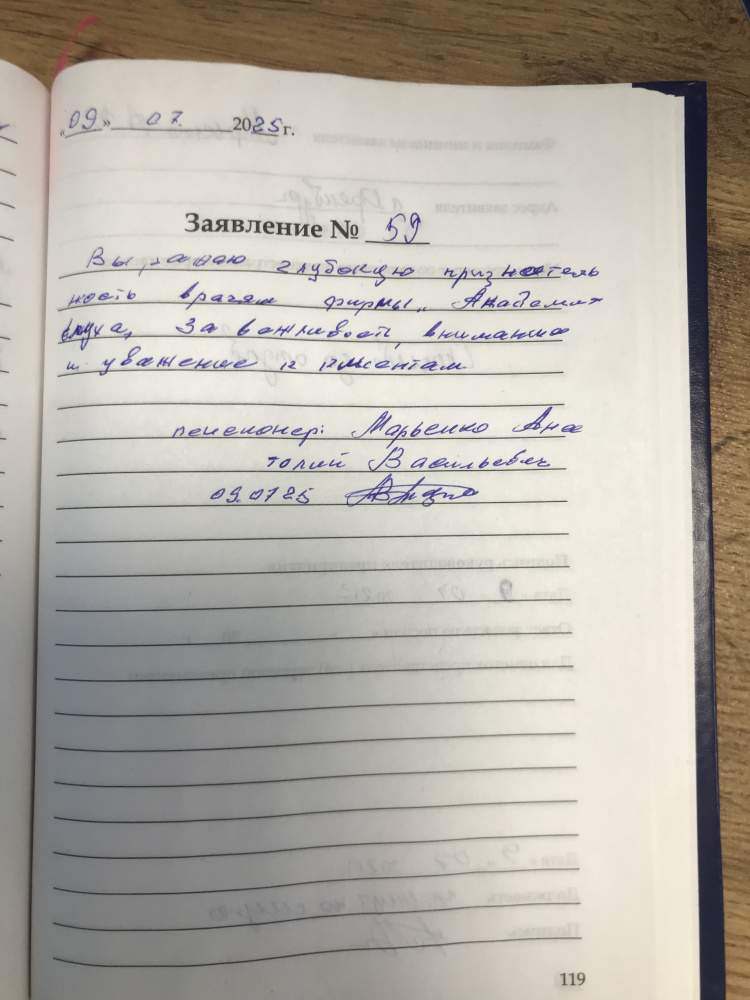 „09" 07. 2025 г.
Заявление № 59
Выражаю глубокую признатель
ность врачам фирмы „Академия
слуха„ За вежливость, внимание
и уважение к пациентам
пенсионер: Марьенко Ана
толий Васильевич
09.07.25
119